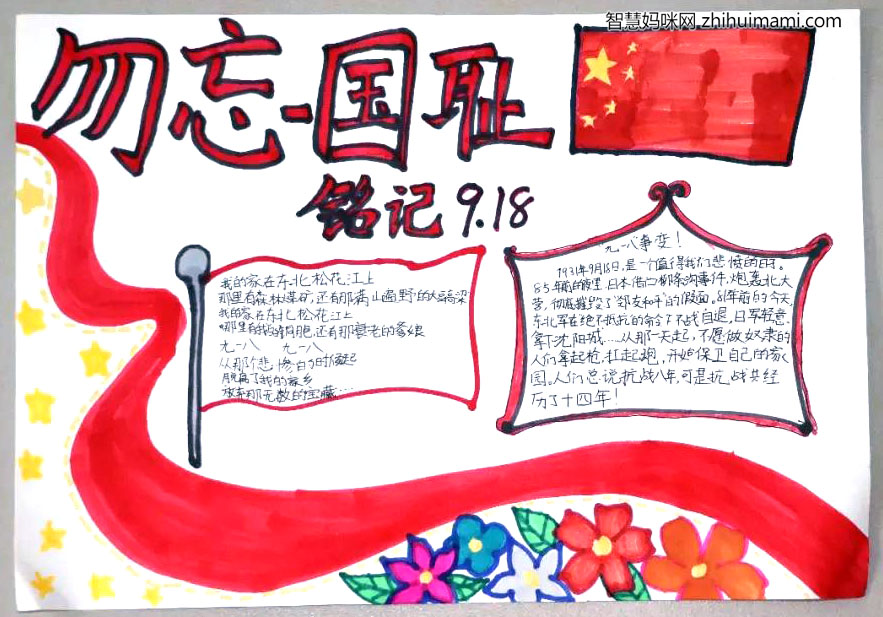 智慧妈咪网 zhihuimami.com
勿忘-国耻
铭记9.18
我的家在东北松花江上
那里有森林煤矿,还有那满山遍野的大豆高粱
我的家在东北松花江上
那里有我的同胞,还有那衰老的爹娘
九一八 九一八
从那个悲惨的时候起
脱离了我的家乡
抛弃那无数的宝藏……
九一八事变!
1931年9月18日,是一个值得我们悲愤的日子。
85年前的夜里,日本借口柳条沟事件,炮轰北大
营,彻底摧毁了"邻友和平"的假面。81年前的今天,
东北军在绝不抵抗的命令下不战自退,日军轻意
拿下沈阳城……从那一天起,不愿做奴隶的
人们拿起枪、扛起炮,开始保卫自己的家
园。人们总说抗战八年,可是抗战共经
历了十四年!